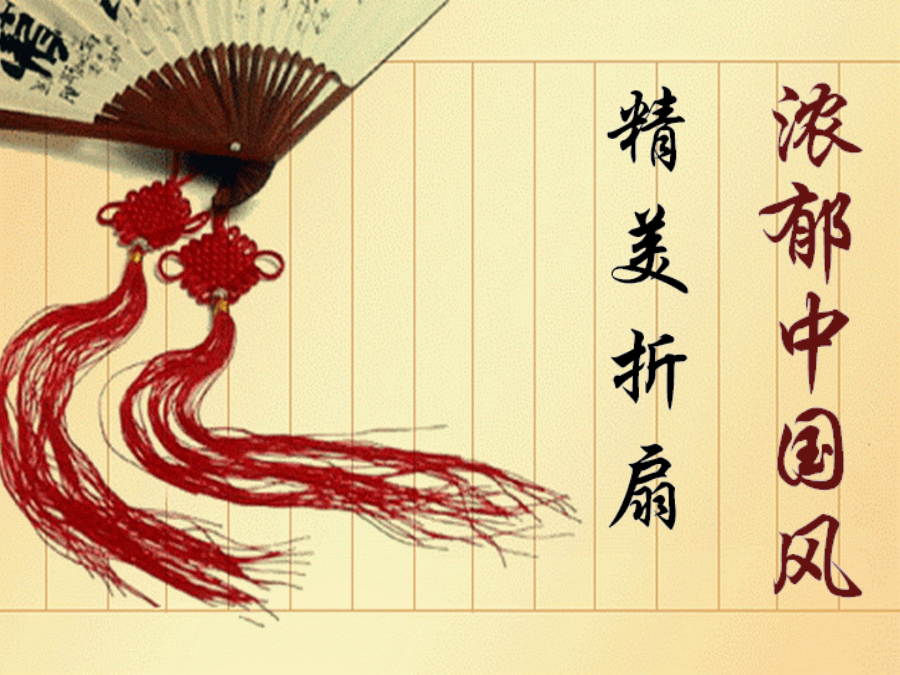 浓郁中国风
精美折扇